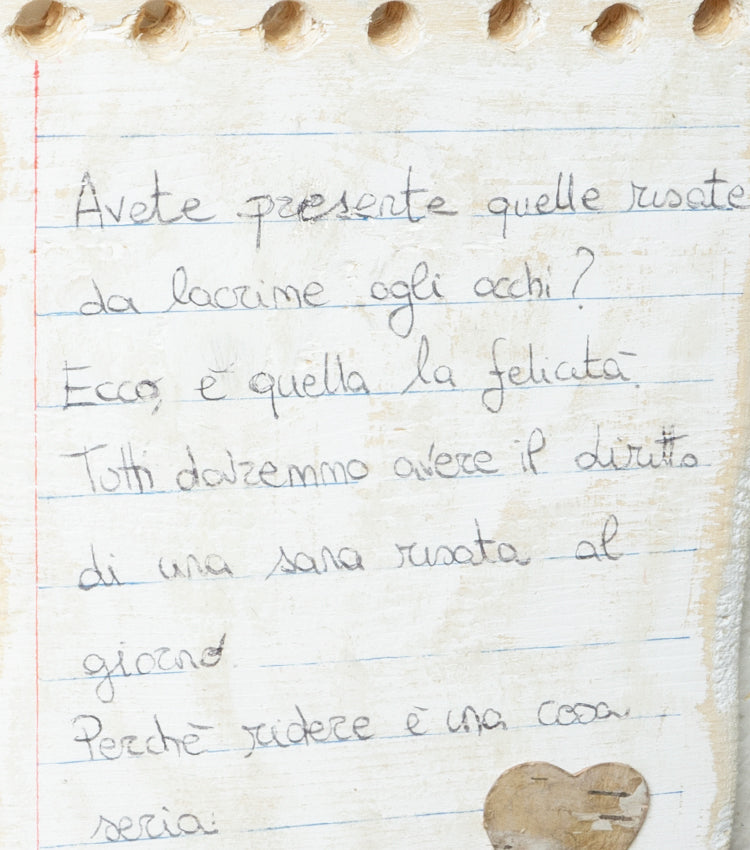 Avete presente quelle risate
da lacrime agli occhi?
Ecco, è quella la felicità.
Tutti dovremmo avere il diritto
di una sana risata al
giorno
Perchè ridere è una cosa
seria.